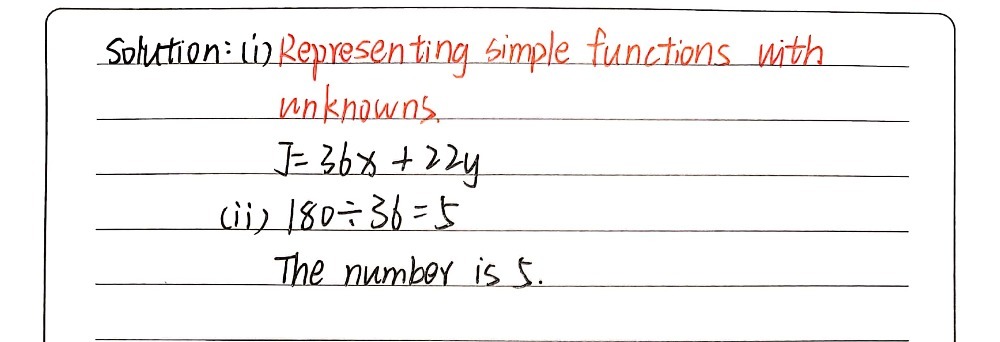 Solution: (i) Representing simple functions with
unknowns.
J = 36x + 22y
(ii) 180 ÷ 36 = 5
The number is 5.